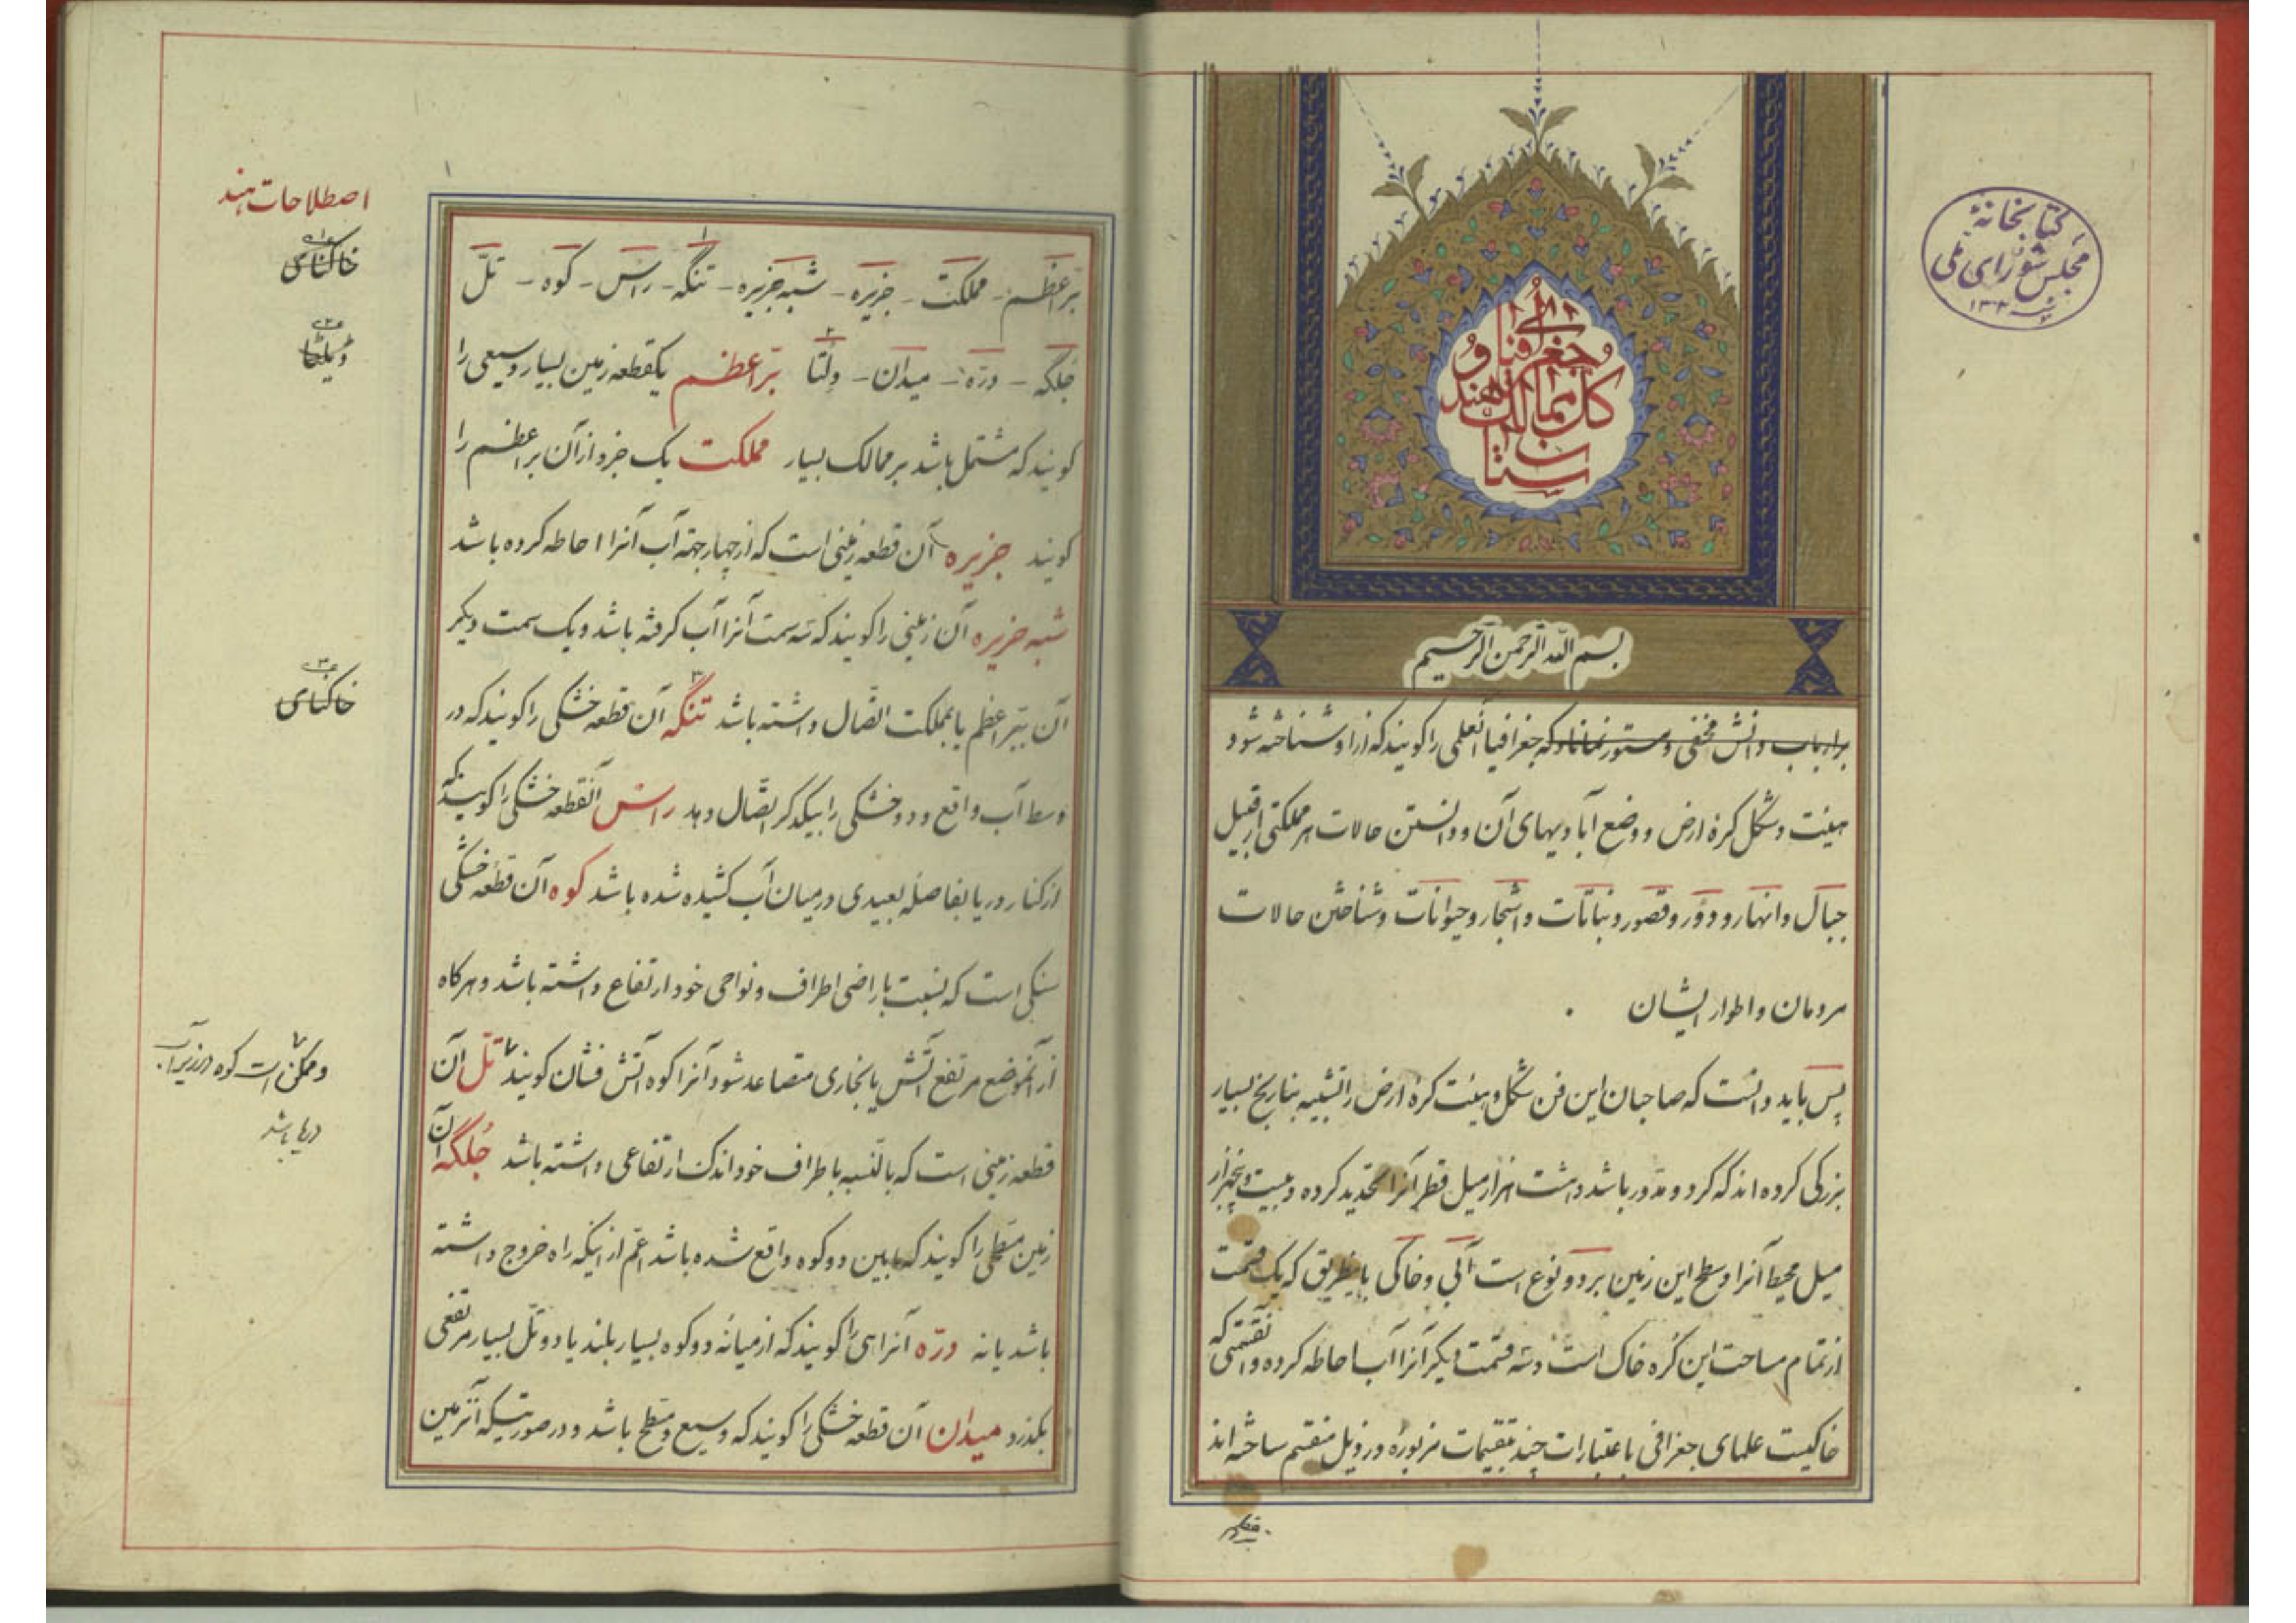 کتابخانهٔ
مجلس شورای ملی
۱۳۰۴
جغرافیای
کل ممالک هند
و
ستان
بسم الله الرحمن الرحیم
برارباب دانش مخفی و مستور نماناد که جغرافیا آنعلمی را کویند که ازاو شناخته شود
هیئت و شکل کرهٔ ارض و وضع آبادیهای آن و دانستن حالات هر مملکتی از قبیل
جبال و انهار و دور و قصور و نباتات و اشجار و حیوانات و شناختن حالات
مردمان و اطوار ایشان
پس باید دانست که صاحبان این فن شکل و هیئت کرهٔ ارض را تشبیه بنارنج بسیار
بزرکی کرده اند که کرد و مدور باشد و هشت هزار میل قطر آنرا تحدید کرده و بیست و پنجهزار
میل محیط آنرا و سطح این زمین بر دو نوع است آبی و خاکی باینطریق که یک قسمت
از تمام مساحت این کره خاک است و سه قسمت دیکر آنرا آب احاطه کرده و آنقسمتی که
خاکیست علمای جغرافی باعتبارات چند بتقسیمات مزبوره در ذیل منقسم ساخته اند
برّ اعظم - مملکت - جزیره - شبه جزیره - تنگه - راس - کوه - تلّ
۱
جلگه - درّه - میدان - دلتا برّ اعظم یکقطعه زمین بسیار وسیعی را
۲
کویند که مشتمل باشد بر ممالک بسیار مملکت یک جزو از آن بر اعظم را
کویند جزیره آن قطعه زمینی است که از چهار جهته آب آنرا احاطه کرده باشد
شبه جزیره آن زمینی را کویند که سه سمت آنرا آب کرفته باشد و یک سمت دیکر
آن ببرّ اعظم یا بمملکت اتّصال داشته باشد تنگه آن قطعه خشکی را کویند که در
۳
وسط آب واقع و دو خشکی را بیکدیکر اتّصال دهد راس آنقطعه خشکی را کویند که
از کنار دریا بفاصله بعیدی در میان آب کشیده شده باشد کوه آن قطعه خشکی
سنکی است که نسبت باراضی اطراف و نواحی خود ارتفاع داشته باشد و هرکاه
از آنموضع مرتفع آتش یا بخاری متصاعد شود آنرا کوه آتش فشان کویند تلّ آن
قطعه زمینی است که بالنسبه باطراف خود اندک ارتفاعی داشته باشد جُلگه آن
زمین مسطحی را کویند که مابین دو کوه واقع شده باشد اعم از اینکه راه خروج داشته
باشد یا نه درّه آنراهی را کویند که از میانه دو کوه بسیار بلند یا دو تلّ بسیار مرتفعی
بکذرد میدان آن قطعه خشکی را کویند که وسیع و مسطح باشد و در صورتیکه آنزمین
اصطلاحات هند
خاکنای
ڈیلٹا
خاکنای
و ممکن است کوه در زیر آب
دریا باشد